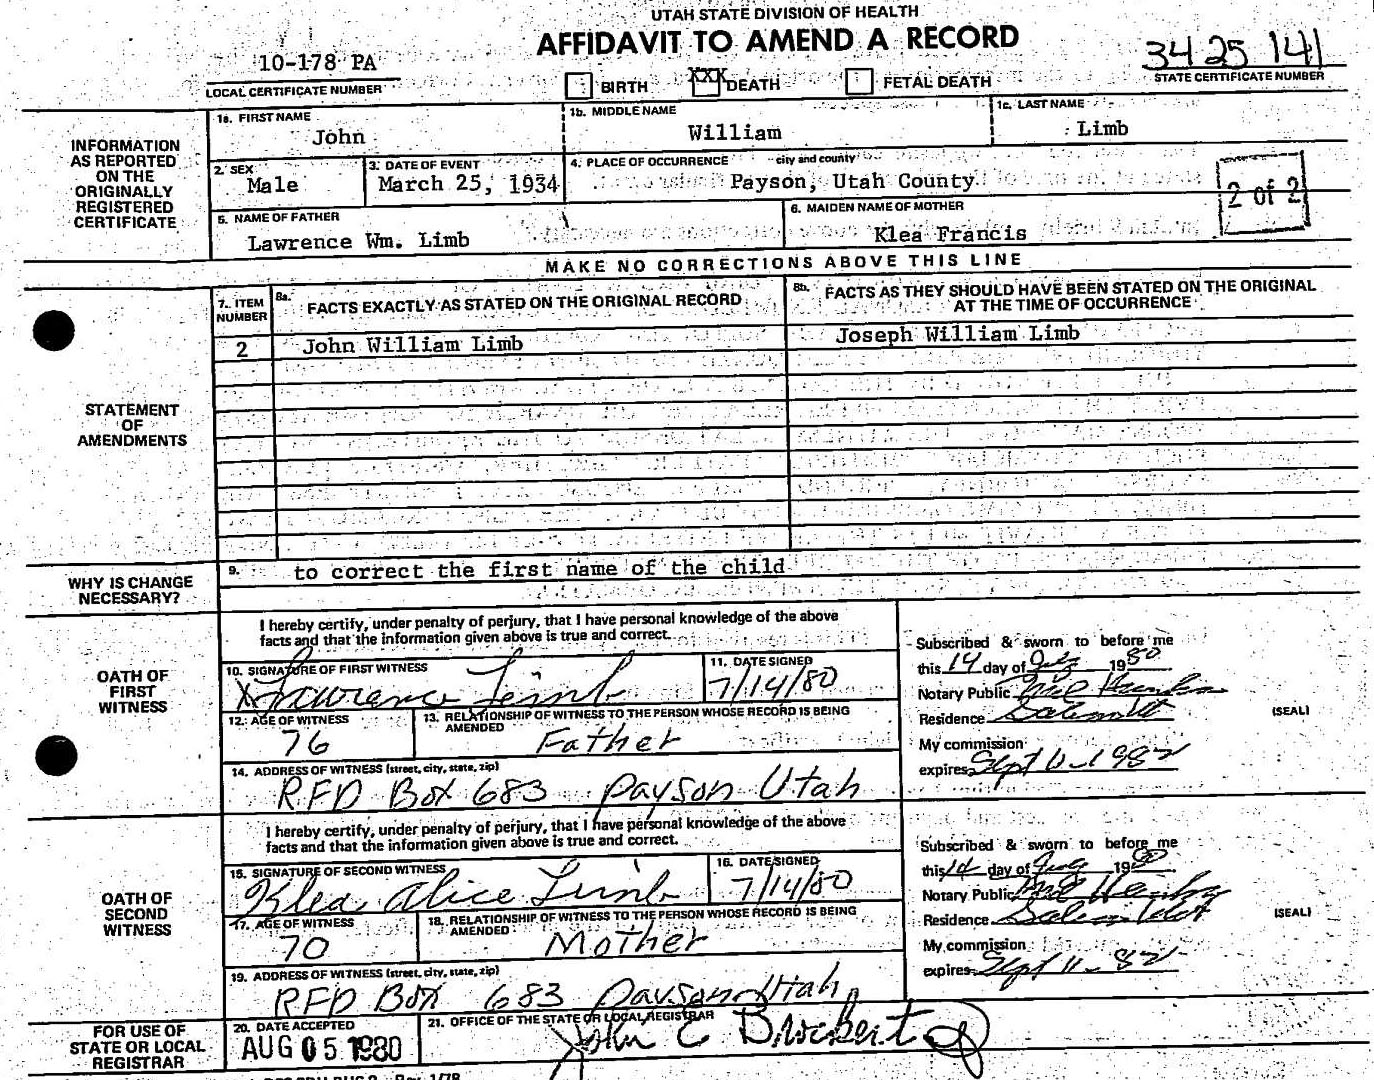 UTAH STATE DIVISION OF HEALTH
AFFIDAVIT TO AMEND A RECORD
10-178 PA
LOCAL CERTIFICATE NUMBER
BIRTH
XXX DEATH
FETAL DEATH
34 25 141
STATE CERTIFICATE NUMBER
INFORMATION AS REPORTED ON THE ORIGINALLY REGISTERED CERTIFICATE
1a. FIRST NAME
John
1b. MIDDLE NAME
William
1c. LAST NAME
Limb
2. SEX
Male
3. DATE OF EVENT
March 25, 1934
4. PLACE OF OCCURRENCE city and county
Payson, Utah County
2 of 2
5. NAME OF FATHER
Lawrence Wm. Limb
6. MAIDEN NAME OF MOTHER
Klea Francis
MAKE NO CORRECTIONS ABOVE THIS LINE
STATEMENT OF AMENDMENTS
7. ITEM NUMBER
8a. FACTS EXACTLY AS STATED ON THE ORIGINAL RECORD
8b. FACTS AS THEY SHOULD HAVE BEEN STATED ON THE ORIGINAL AT THE TIME OF OCCURRENCE
2
John William Limb
Joseph William Limb
WHY IS CHANGE NECESSARY?
9. to correct the first name of the child
OATH OF FIRST WITNESS
I hereby certify, under penalty of perjury, that I have personal knowledge of the above
facts and that the information given above is true and correct.
10. SIGNATURE OF FIRST WITNESS
X Lawrence Limb
11. DATE SIGNED
7/14/80
12. AGE OF WITNESS
76
13. RELATIONSHIP OF WITNESS TO THE PERSON WHOSE RECORD IS BEING AMENDED
Father
14. ADDRESS OF WITNESS (street, city, state, zip)
RFD Box 683 Payson Utah
Subscribed & sworn to before me
this 14 day of July 1980
Notary Public
Residence Salem Ut
(SEAL)
My commission
expires Sept 11-1982
OATH OF SECOND WITNESS
I hereby certify, under penalty of perjury, that I have personal knowledge of the above
facts and that the information given above is true and correct.
15. SIGNATURE OF SECOND WITNESS
Klea Alice Limb
16. DATE SIGNED
7/14/80
17. AGE OF WITNESS
70
18. RELATIONSHIP OF WITNESS TO THE PERSON WHOSE RECORD IS BEING AMENDED
Mother
19. ADDRESS OF WITNESS (street, city, state, zip)
RFD Box 683 Payson Utah
Subscribed & sworn to before me
this 14 day of July 1980
Notary Public
Residence Salem
(SEAL)
My commission
expires Sept 11-82
FOR USE OF STATE OR LOCAL REGISTRAR
20. DATE ACCEPTED
AUG 05 1980
21. OFFICE OF THE STATE OR LOCAL REGISTRAR
John E Brockert
Rev. 1/78